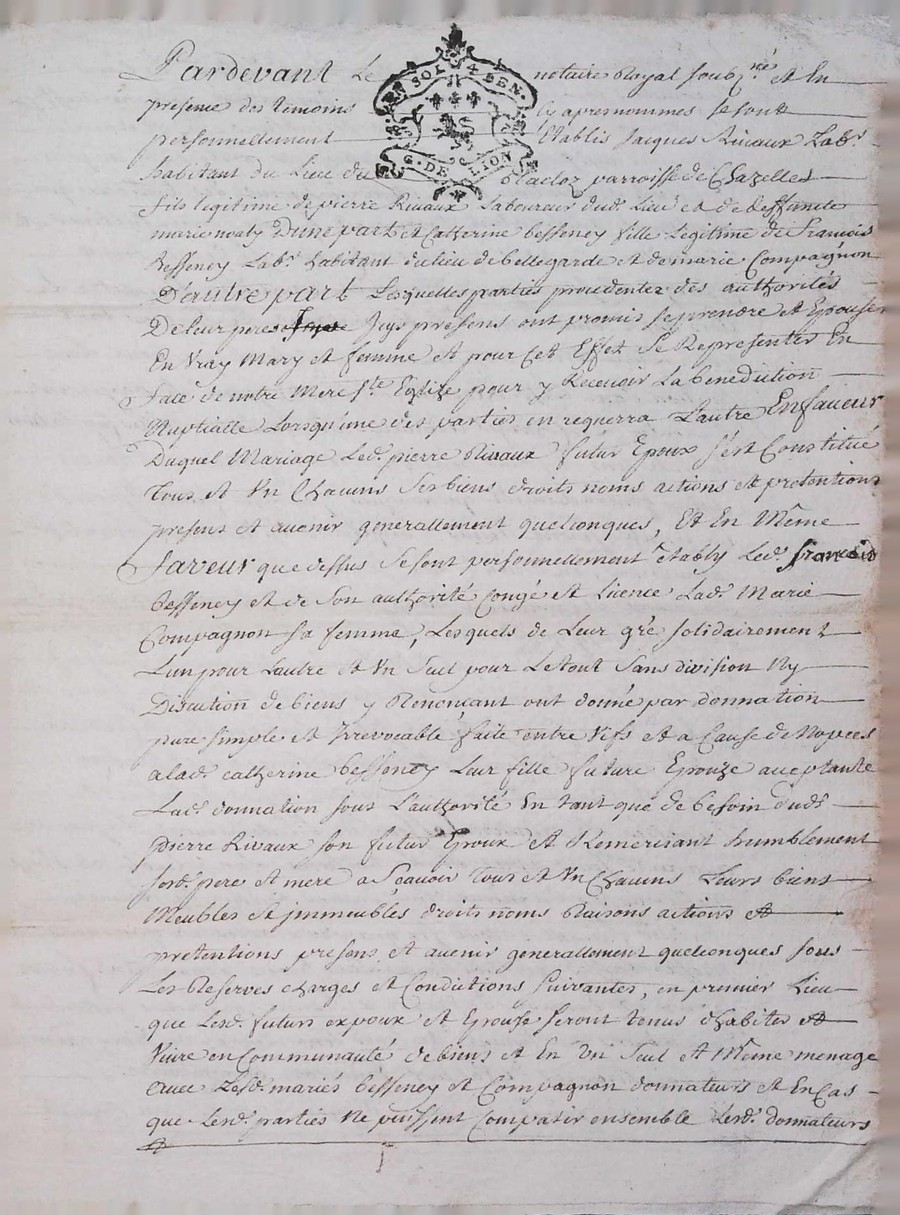 Pardevant Le notaire Royal soubsné et En
presence des temoins cy apres nommes se sont
personnellement Etablis Jacques Rivaux Labr
habitant du Lieu du parroisse de Chazelles
fils legitime de pierre Rivaux Laboureur dud. Lieu et de deffuncte
marie Dune part et Catherine besseney fille Legitime de Francois
Besseney Labr habitant du lieu de bellegarde et de marie Compagnon
D'autre part Lesquelles parties procedentes des authorités
De leur peres Icys presens ont promis se prendre et Epouser
En Vray Mary et femme et pour Cet Effet Se Representer En
face de notre Mere Ste Eglize pour y Recevoir La benediction
Nuptialle Lorsqu'une des parties en requerra L'autre En faveur
Duquel Mariage Led. pierre Rivaux futur Epoux s'est Constitué
Tous et Un Chacuns Ses biens droits noms actions et pretentions
presens et avenir generallement quelconques, Et En Même
faveur que dessus Se sont personnellement etably Led. francois
besseney et de Son authorité Congé et Licence Lad. Marie
Compagnon sa femme, Lesquels de Leur gré solidairement
L'un pour L'autre et Un Seul pour Le tout Sans division Ny
Discution de biens y Renonçant ont donné par donnation
pure simple et Irrevocable faite entre Vifs et a Cause de Nopces
a lad. catherine besseney Leur fille future Epouze acceptante
Lad. donnation sous L'authorité En tant que de besoin dudt
pierre Rivaux son futur Epoux et Remerciant humblement
sesd. pere et mere a Sçavoir Tous et Un Chacuns Leurs biens
Meubles et immeubles droits noms Raisons actions et
pretentions presens et avenir generallement quelconques sous
Les Reserves charges et Conditions Suivantes, en premier Lieu
que Lesd. futurs expoux et Epouse seront tenus d'habiter et
Vivre en Communauté de biens et En Un Seul et Même menage
avec Lesd. mariés besseney et Compagnon donnateurs et En Cas
que Lesd. parties Ne puissent Compatir ensemble Lesd. donnateurs
SOL 4 DEN.
G. DE LION